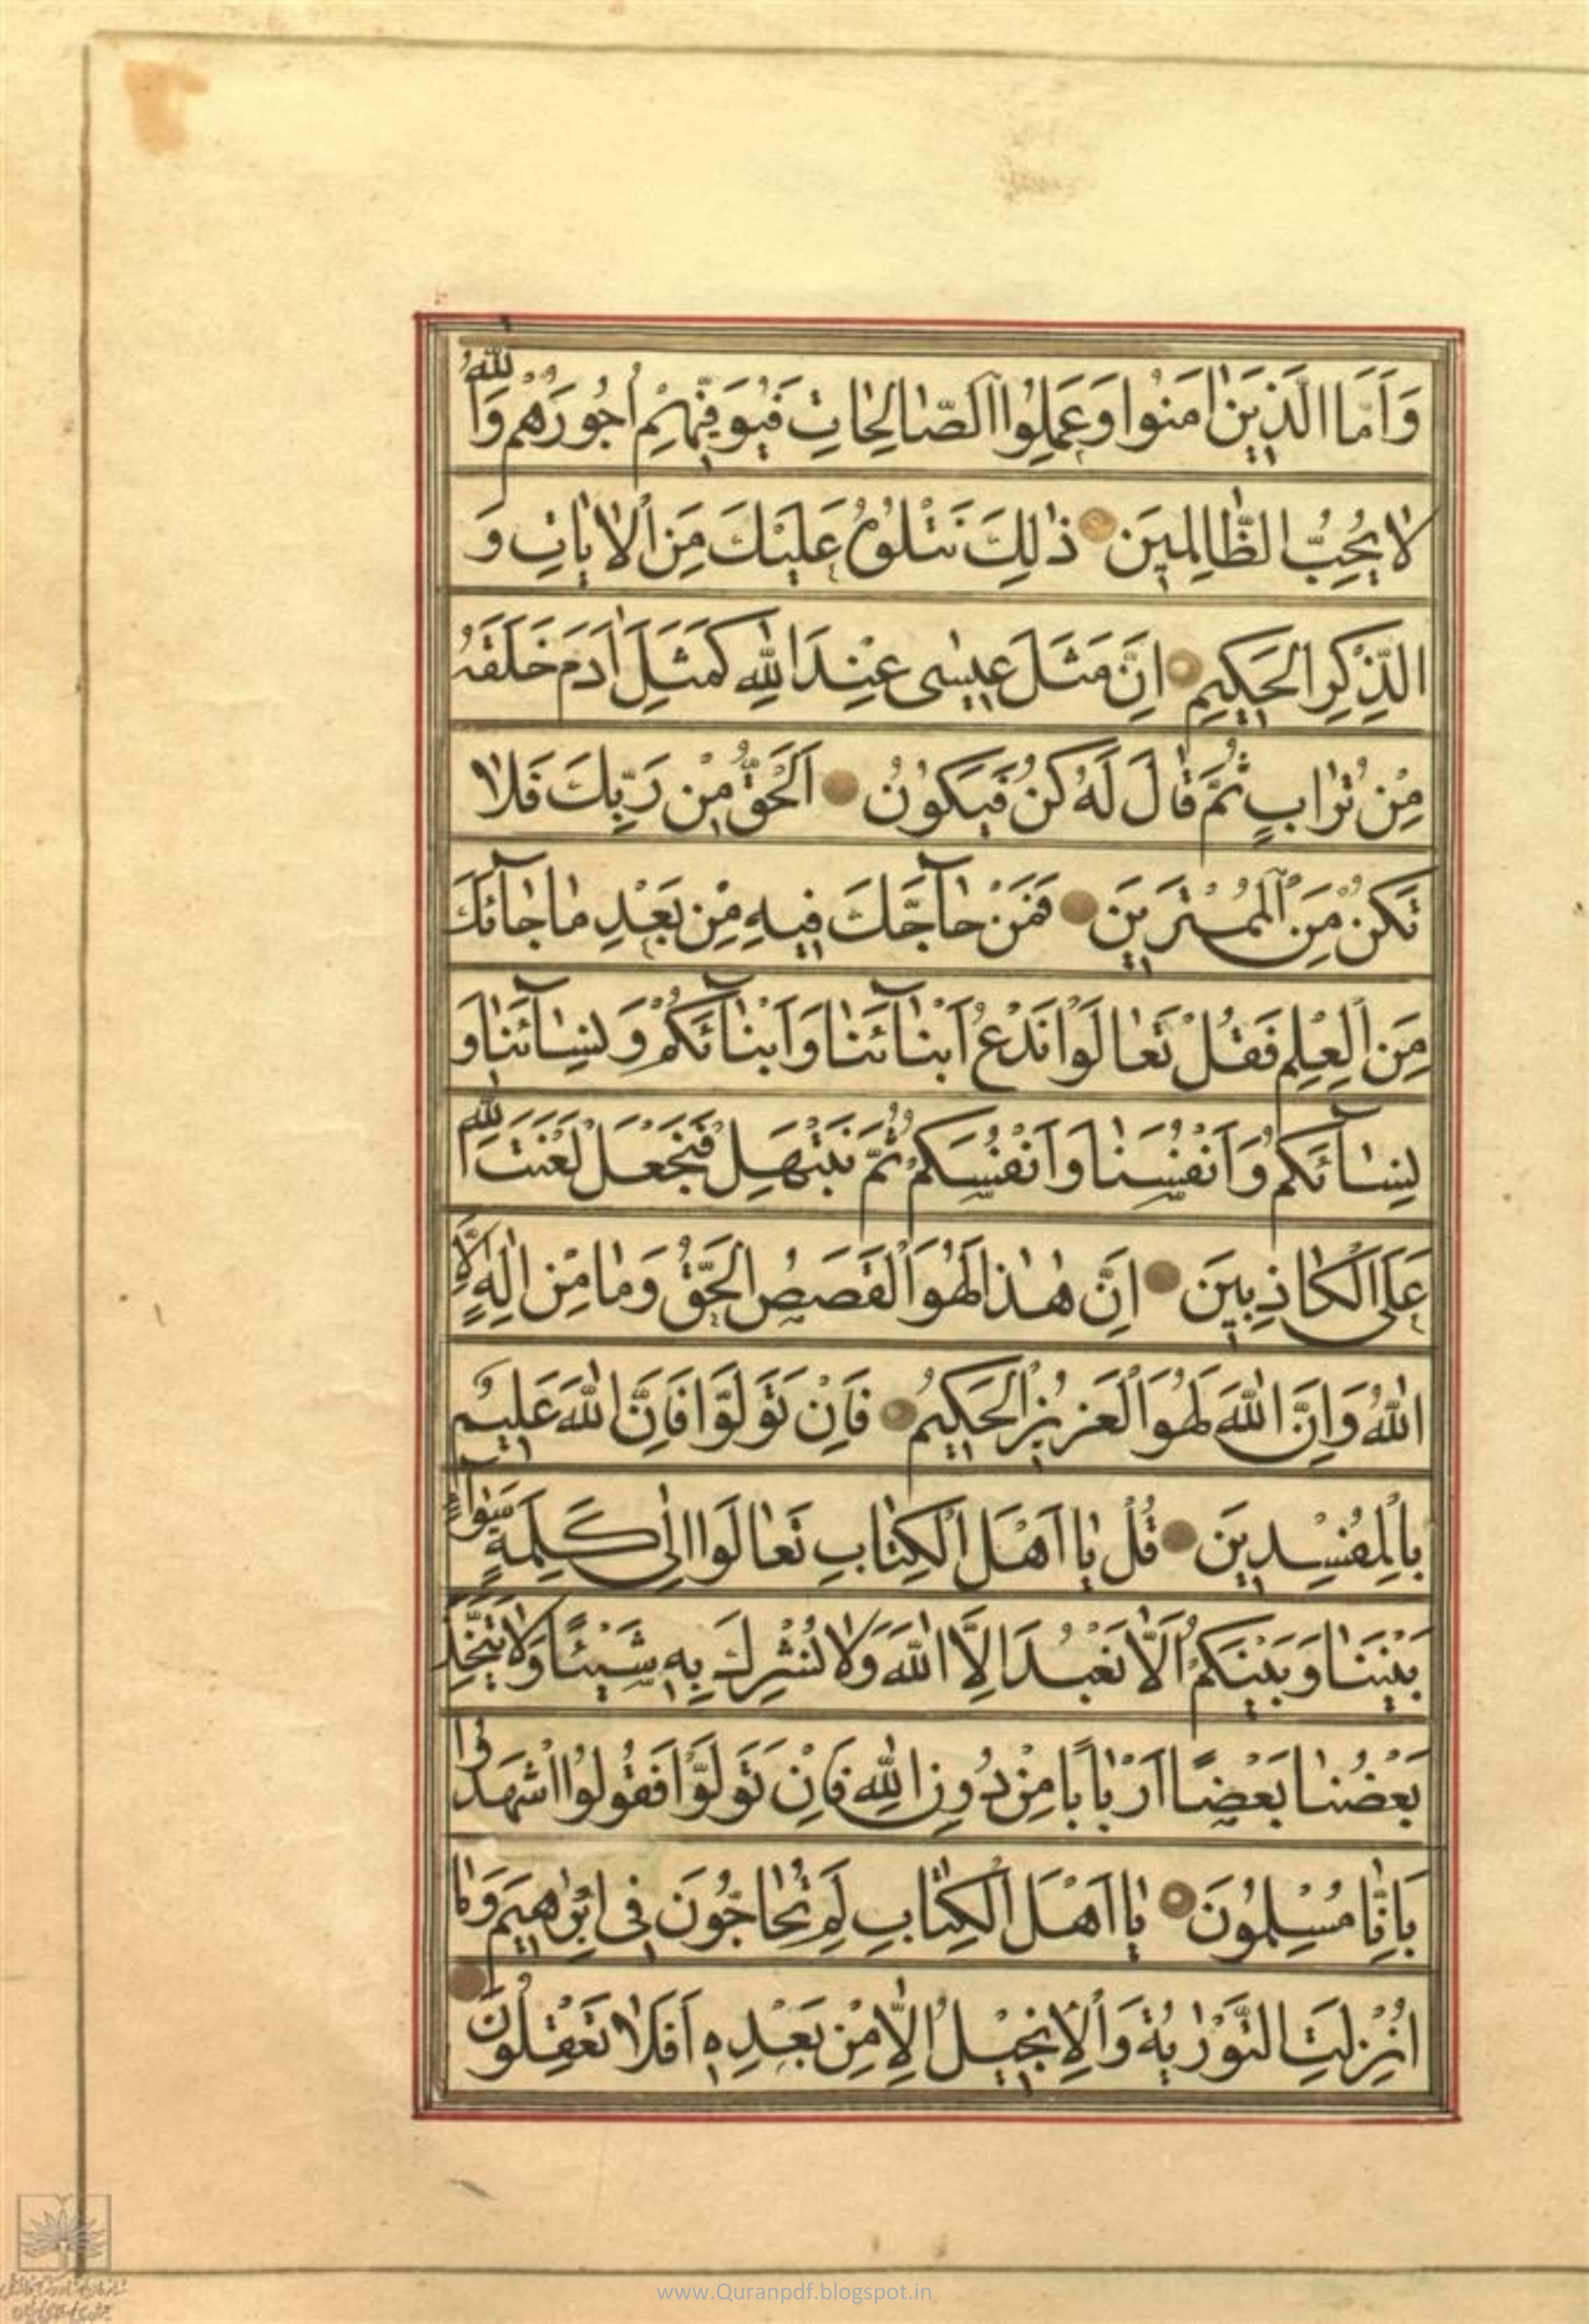 وَاَمَّا الَّذِينَ اٰمَنُوا وَعَمِلُوا الصّٰالِحٰاتِ فَيُوَفِّيهِمْ اُجُورَهُمْ وَاللّٰهُ
لاٰ يُحِبُّ الظّٰالِمِينَ ذٰلِكَ نَتْلُوهُ عَلَيْكَ مِنَ الْاٰيٰاتِ وَ
الذِّكْرِ الْحَكِيمِ اِنَّ مَثَلَ عِيسٰى عِنْدَ اللّٰهِ كَمَثَلِ اٰدَمَ خَلَقَهُ
مِنْ تُرٰابٍ ثُمَّ قٰالَ لَهُ كُنْ فَيَكُونُ اَلْحَقُّ مِنْ رَبِّكَ فَلاٰ
تَكُنْ مِنَ الْمُمْتَرِينَ فَمَنْ حٰآجَّكَ فِيهِ مِنْ بَعْدِ مٰا جٰآئَكَ
مِنَ الْعِلْمِ فَقُلْ تَعٰالَوْا نَدْعُ اَبْنٰآئَنٰا وَاَبْنٰآئَكُمْ وَنِسٰآئَنٰا وَ
نِسٰآئَكُمْ وَاَنْفُسَنٰا وَاَنْفُسَكُمْ ثُمَّ نَبْتَهِلْ فَنَجْعَلْ لَعْنَتَ اللّٰهِ
عَلَى الْكٰاذِبِينَ اِنَّ هٰذٰا لَهُوَ الْقَصَصُ الْحَقُّ وَمٰا مِنْ اِلٰهٍ اِلَّا
اللّٰهُ وَاِنَّ اللّٰهَ لَهُوَ الْعَزِيزُ الْحَكِيمُ فَاِنْ تَوَلَّوْا فَاِنَّ اللّٰهَ عَلِيمٌ
بِالْمُفْسِدِينَ قُلْ يٰا اَهْلَ الْكِتٰابِ تَعٰالَوْا اِلٰى كَلِمَةٍ سَوٰآءٍ
بَيْنَنٰا وَبَيْنَكُمْ اَلَّا نَعْبُدَ اِلَّا اللّٰهَ وَلاٰ نُشْرِكَ بِهِ شَيْئًا وَلاٰ يَتَّخِذَ
بَعْضُنٰا بَعْضًا اَرْبٰابًا مِنْ دُونِ اللّٰهِ فَاِنْ تَوَلَّوْا فَقُولُوا اشْهَدُوا
بِاَنّٰا مُسْلِمُونَ يٰا اَهْلَ الْكِتٰابِ لِمَ تُحٰاجُّونَ فِى اِبْرٰاهِيمَ وَمٰا
اُنْزِلَتِ التَّوْرٰيةُ وَالْاِنْجِيلُ اِلَّا مِنْ بَعْدِهِ اَفَلاٰ تَعْقِلُونَ
www.Quranpdf.blogspot.in